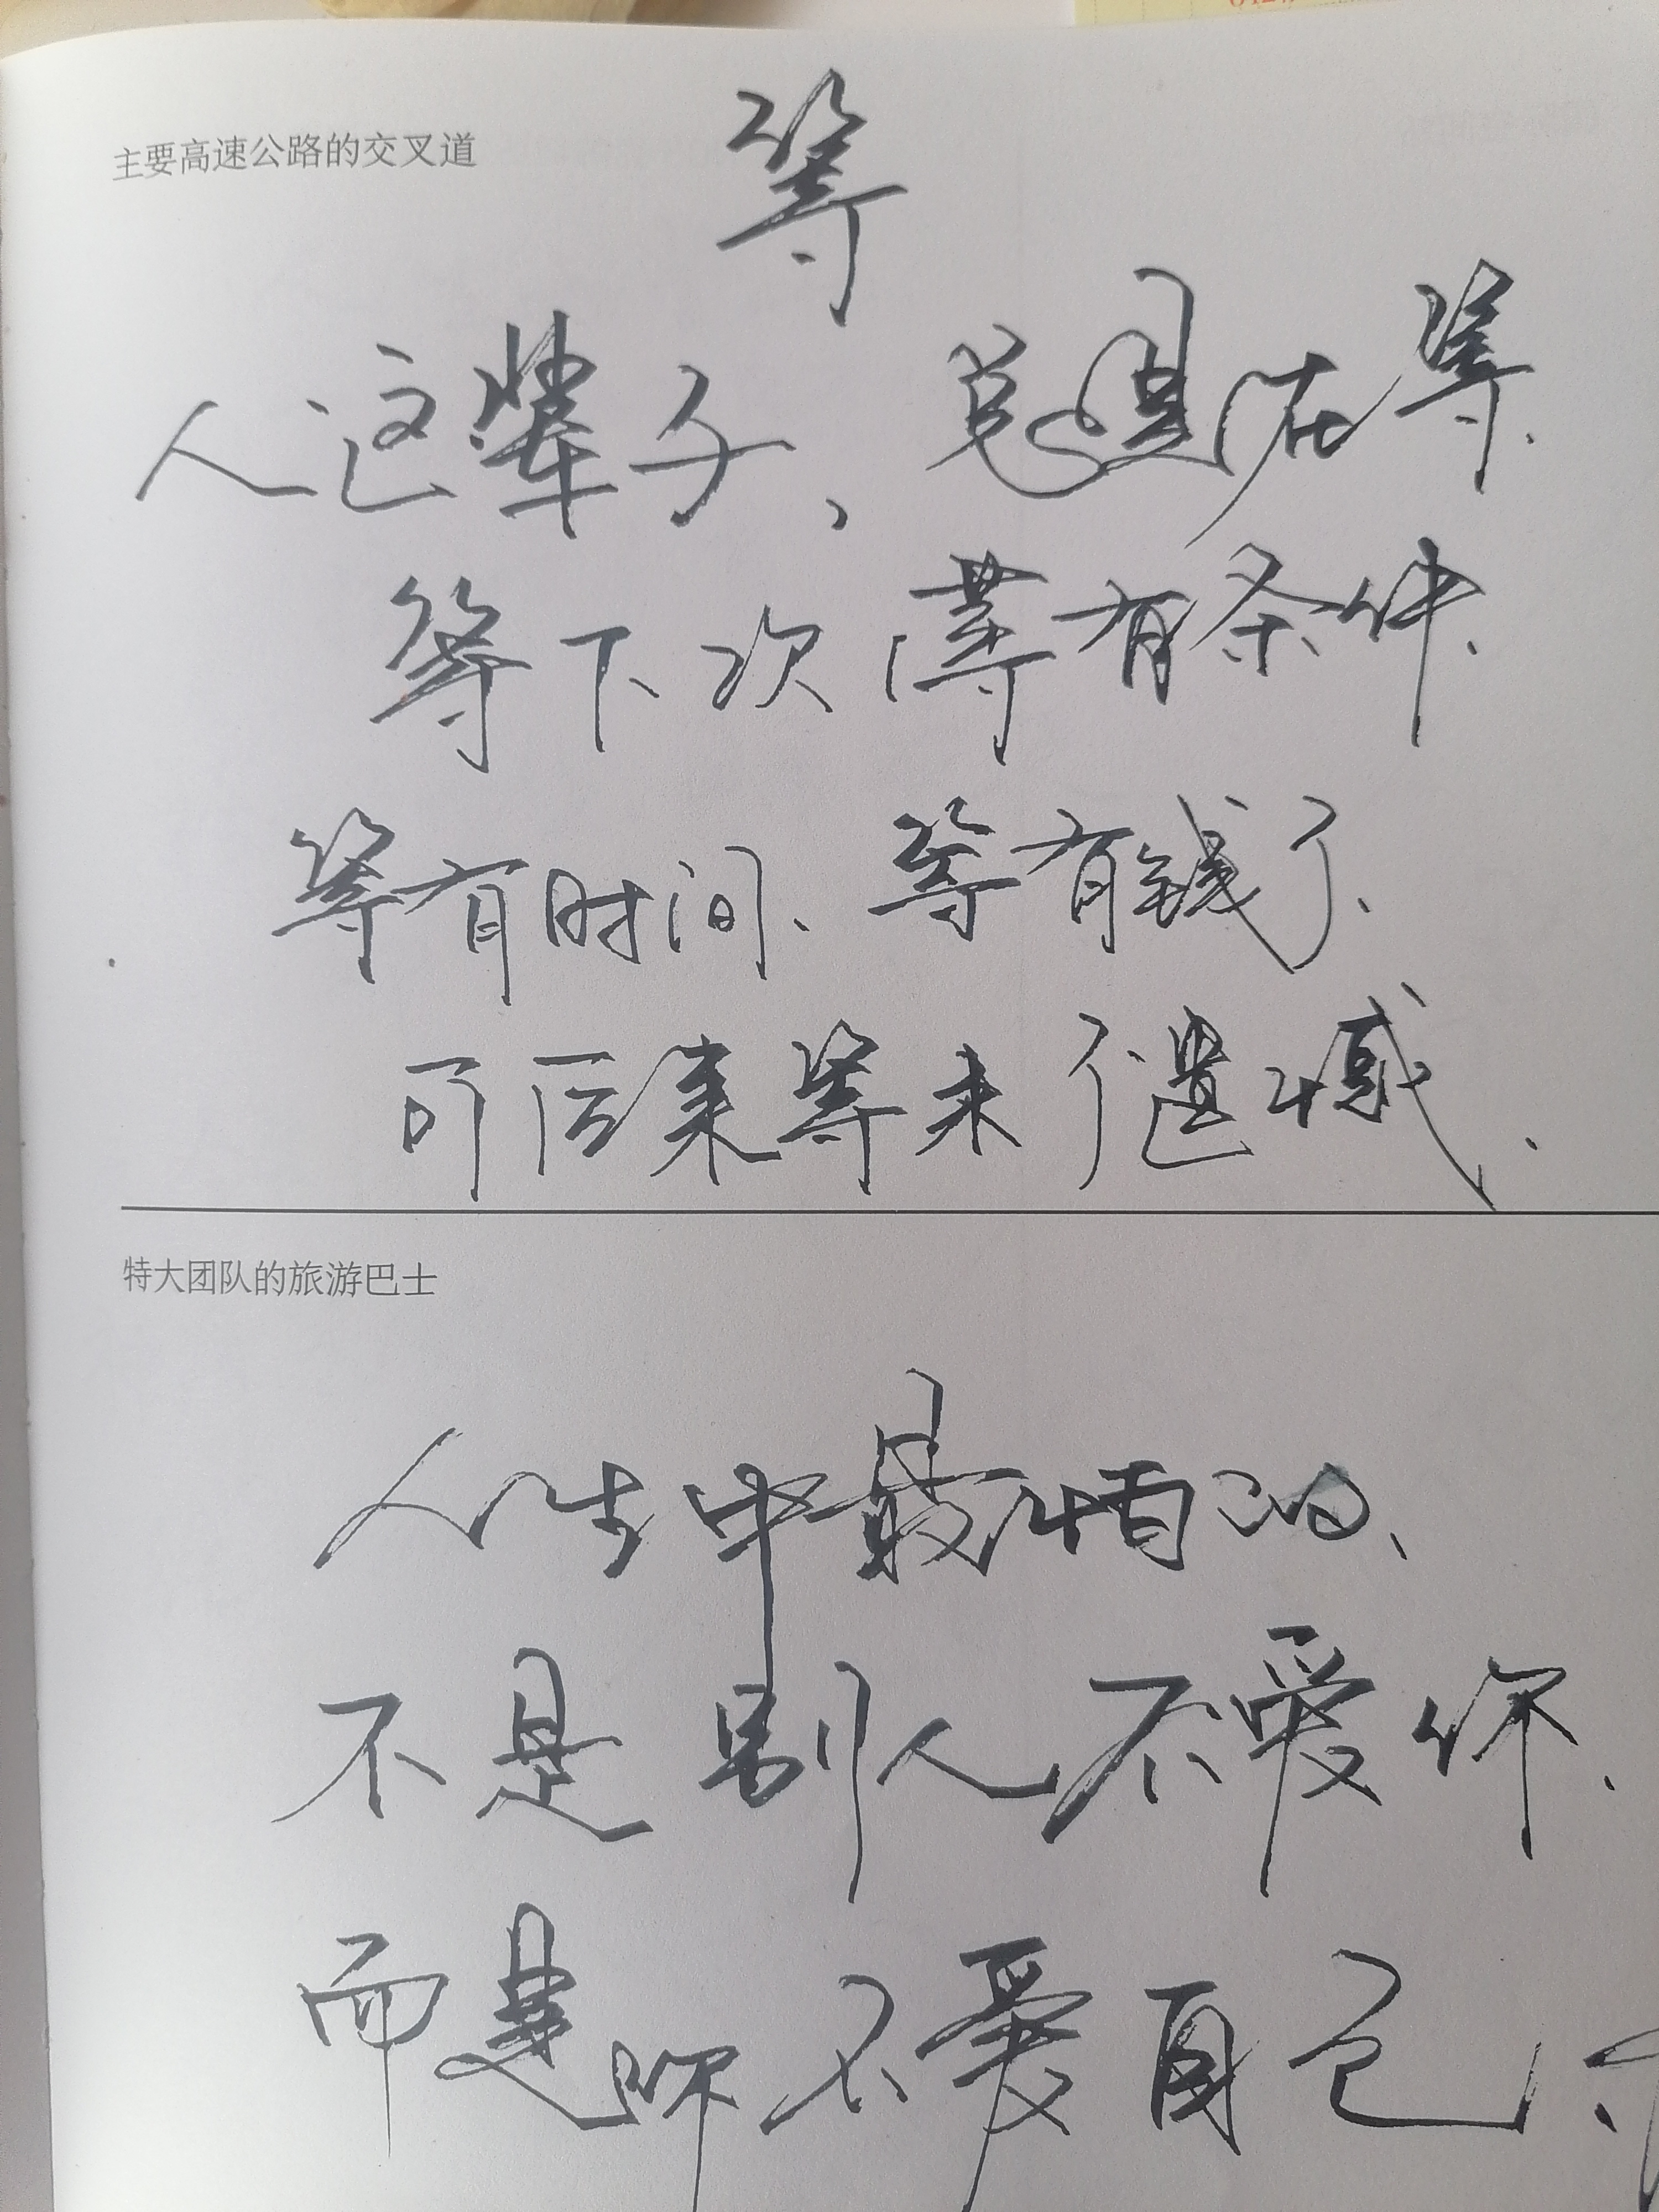 主要高速公路的交叉道
等
人这辈子,总是在等.
等下次、等有条件、
等有时间、等有钱了、
可后来等来了遗憾、
特大团队的旅游巴士
人生中最怕的、
不是别人不爱你、
而是你不爱自己、